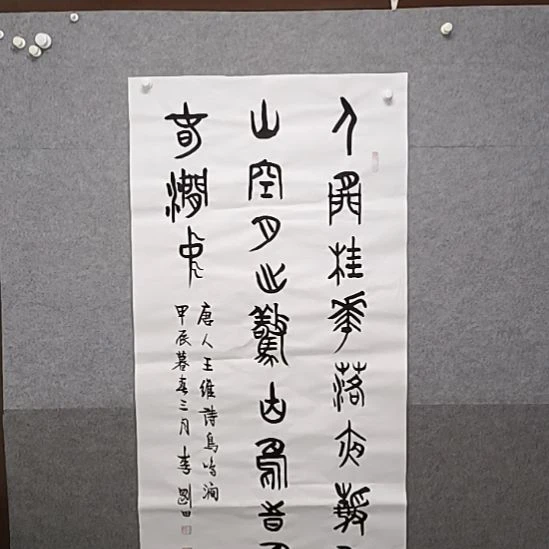 人閒桂華落夜靜
山空月出驚山鳥時
春澗中
唐人王維詩鳥鳴澗
甲辰暮春三月李剛田